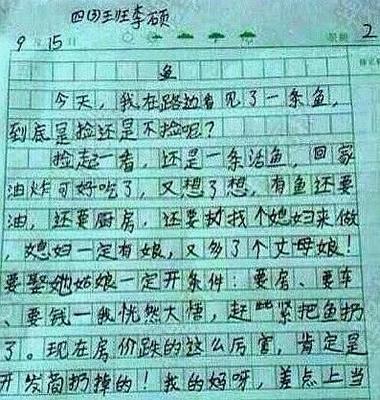 四(3)班李硕
9 15日 星期 2
鱼
今天，我在路边看见了一条鱼，
到底是捡还是不捡呢？
捡起一看，还是一条活鱼，回家
油炸可好吃了，又想了想，有鱼还要
油，还要厨房，还要找个媳妇来做
，媳妇一定有娘，又多了个丈母娘！
要娶她姑娘一定开条件：要房、要车
、要钱一我恍然大悟，赶紧把鱼扔
了。现在房价跌的这么厉害，肯定是
开发商扔掉的！我的妈呀，差点上当